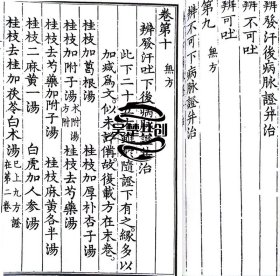 辨不可
辨可吐
第九 無方
辨不可下病脉證并治
卷第十 無方
辨發汗吐下後病脉證并治
此下二十 隨證下有 緣多以
加減為文似未 備故復載方在末卷
桂枝加葛根湯 桂枝加厚朴杏子湯
桂枝加附子湯 术附湯方附 桂枝去芍藥湯
桂枝去芍藥加附子湯 桂枝麻黃各半湯
桂枝二麻黃一湯 白虎加人參湯
桂枝去桂加茯苓白术湯 已上九方證在第二卷